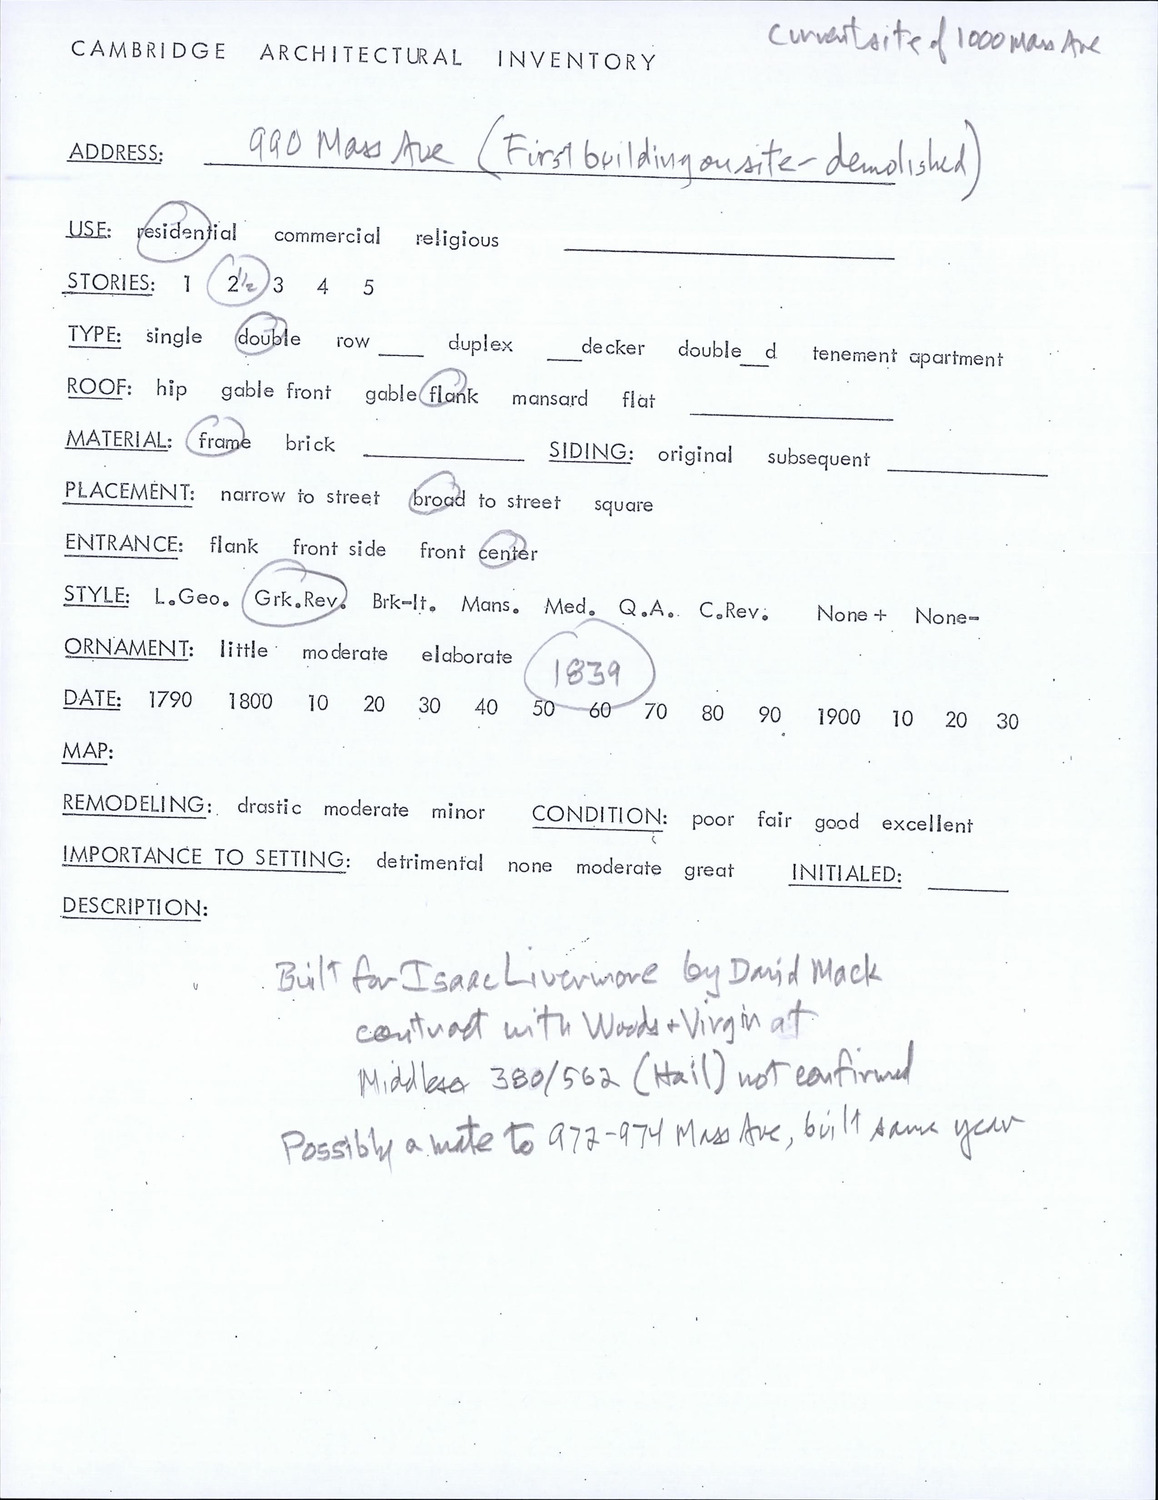 Current site of 1000 Mass Ave
CAMBRIDGE ARCHITECTURAL INVENTORY
ADDRESS: 990 Mass Ave (First building on site - demolished)
USE: residential commercial religious
STORIES: 1 2½ 3 4 5
TYPE: single double row ____ duplex ____decker double___d tenement apartment
ROOF: hip gable front gable flank mansard flat
MATERIAL: frame brick ____ SIDING: original subsequent ____
PLACEMENT: narrow to street broad to street square
ENTRANCE: flank front side front center
STYLE: L.Geo. Grk.Rev. Brk-It. Mans. Med. Q.A. C.Rev. None+ None-
ORNAMENT: little moderate elaborate
1839
DATE: 1790 1800 10 20 30 40 50 60 70 80 90 1900 10 20 30
MAP:
REMODELING: drastic moderate minor CONDITION: poor fair good excellent
IMPORTANCE TO SETTING: detrimental none moderate great INITIALED: ____
DESCRIPTION:
Built for Isaac Livermore by David Mack
contract with Woods + Virgin at
Middlesex 380/562 (Hail) not confirmed
Possibly a mate to 972-974 Mass Ave, built same year